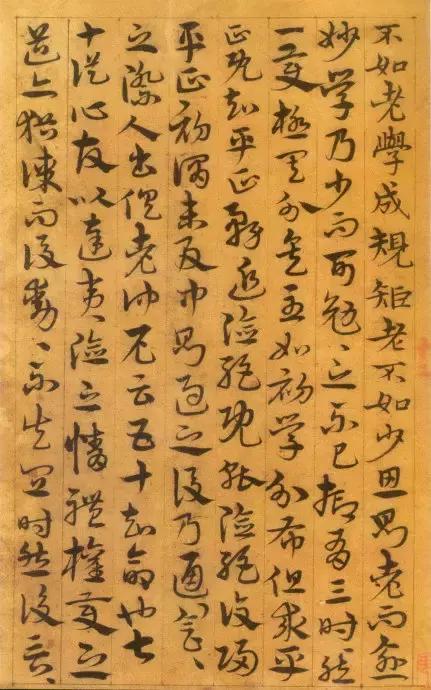 不如老學成規矩老不如少思則老而逾
妙學乃少而可勉、之不已抑有三時然
一變極其分矣至如初學分布但求平
正既知平正務追險絕既能險絕復歸
平正初謂未及中則過之後乃通會、
之際人書俱老仲尼云五十知命也七
十從心故以達夷險之情體權變之
道亦猶謀而後動、不失宜時然後言、